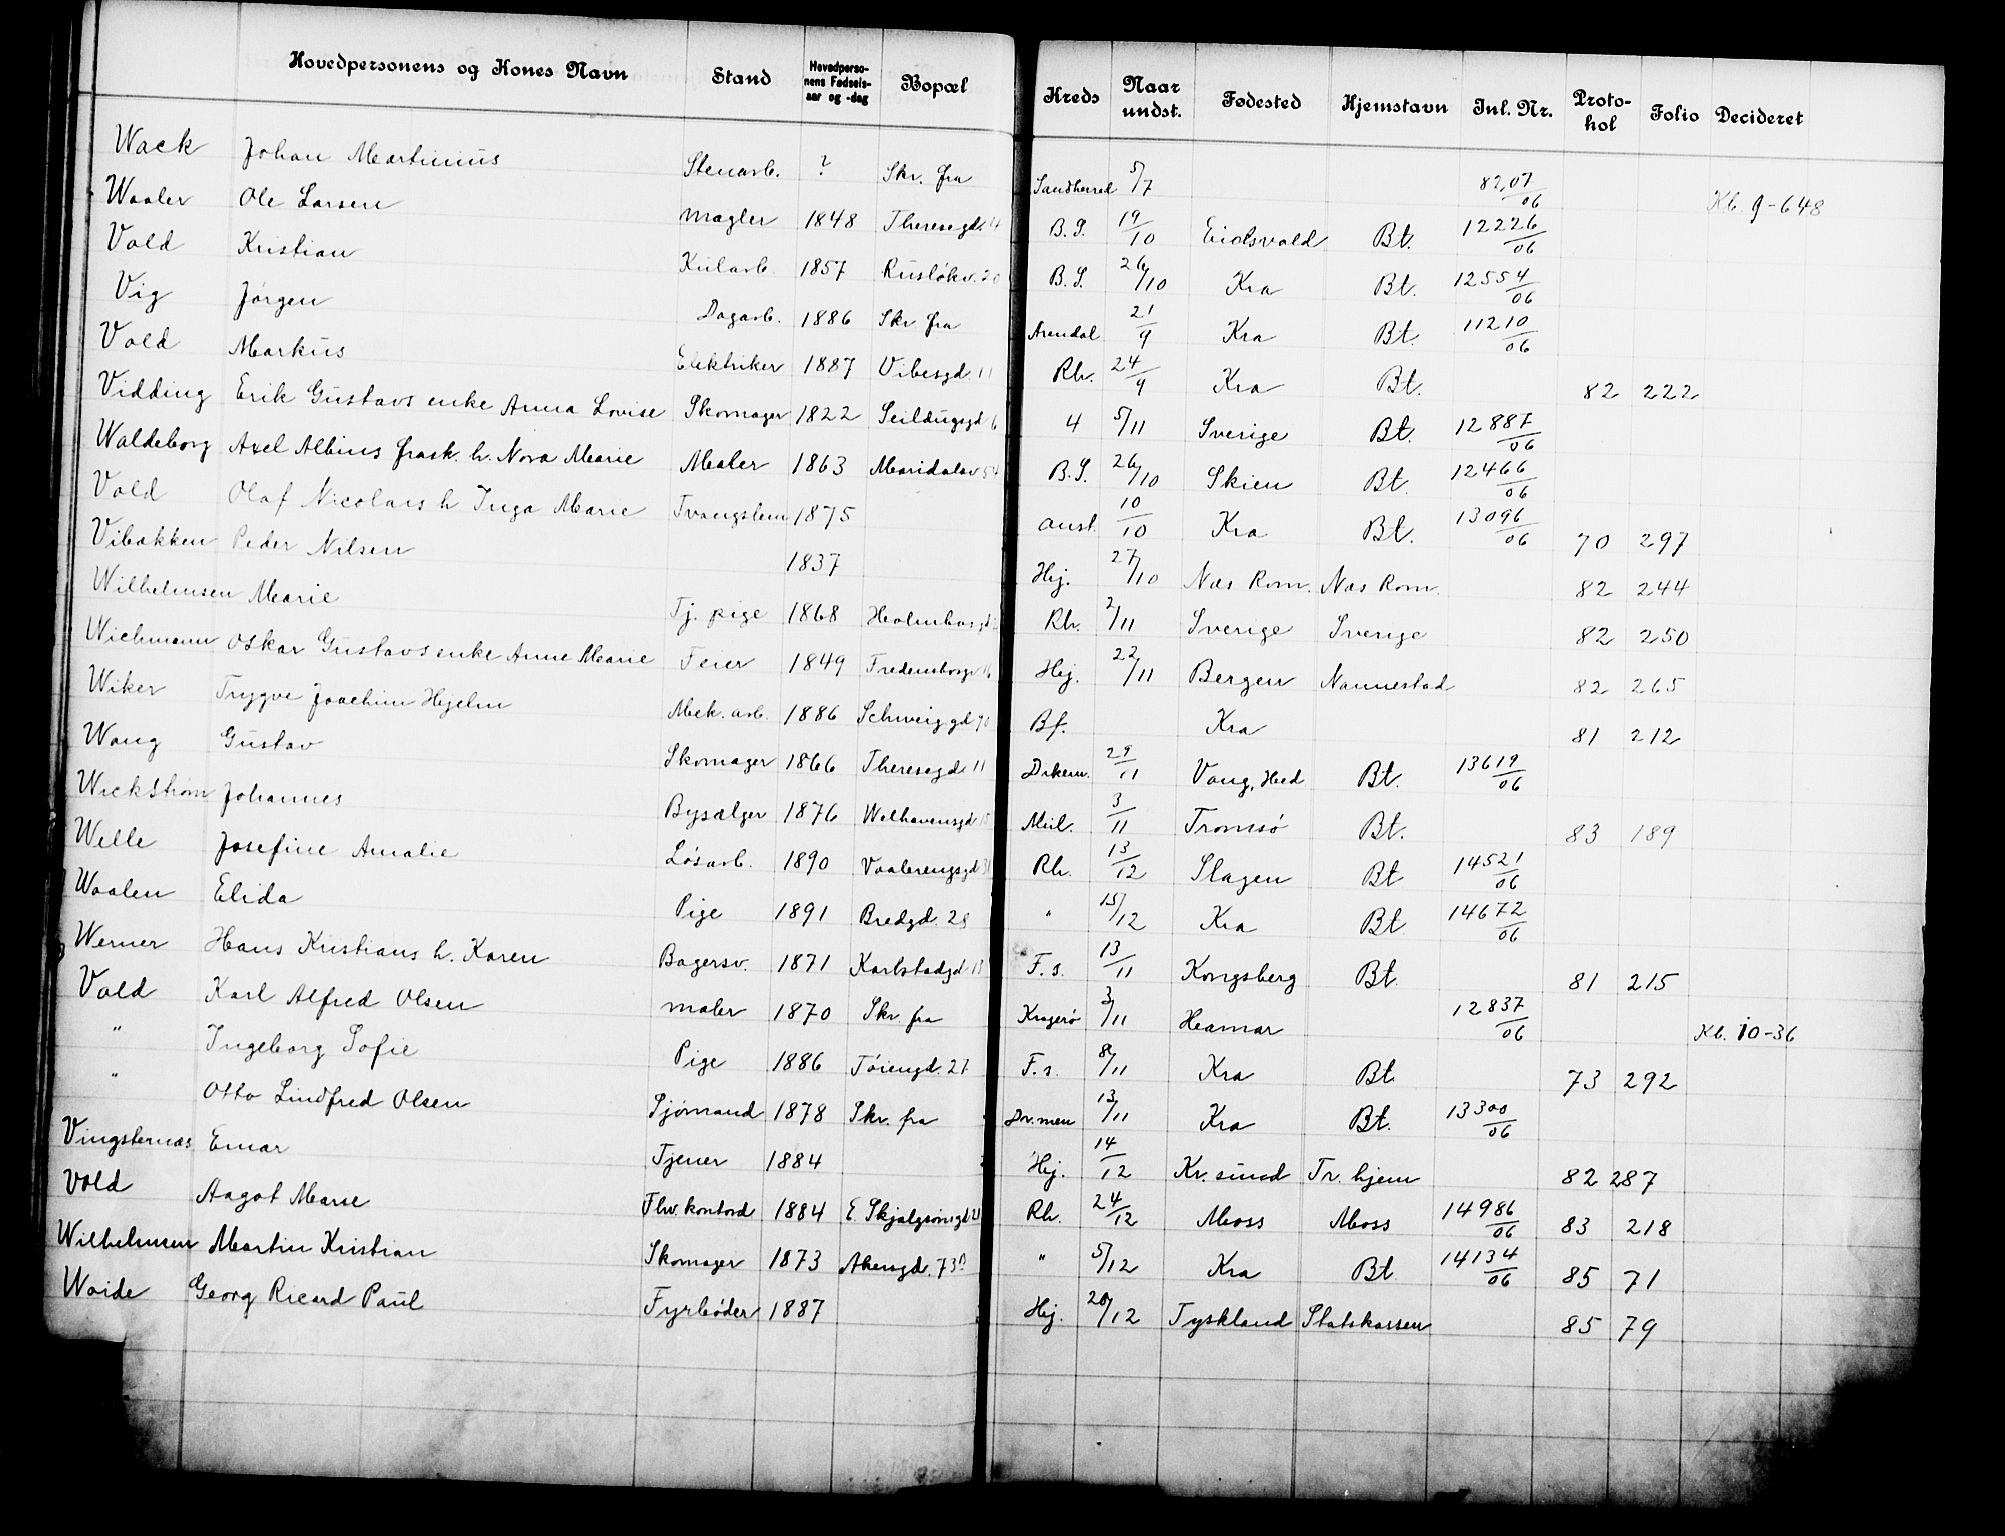 Hovedpersonens og Kones Navn Stand Hovedperso-nens Fødsels-aar og -dag Bopæl Kreds Naar undst. Fødested Hjemstavn Inl. Nr. Proto-kol Folio Decideret
Wack Johan Martinius Stenarb. ? Skr. fra Sandherred 5/7 82,07/06 Kb. 9-648
Waaler Ole Larsen Mægler 1848 Theresegd. 4 B.S. 19/10 Eidsvold Bt. 12226/06
Vold Kristian Kularb. 1857 Rusløkv. 20 B.S. 26/10 Kra Bt. 12554/06
Vig Jørgen Dagarb. 1886 Skr fra Arendal 21/9 Kra Bt. 11210/06
Vold Markus Elektriker 1887 Vibesgd. 11 Rh. 24/9 Kra Bt. 82 222
Vidding Erik Gustavs enke Anna Lovise Skomager 1822 Seildugsgd 6 4 5/11 Sverige Bt. 12887/06
Waldeborg Axel Albins frask. h. Nora Marie Maler 1863 Maridalsv 54 B.S. 26/10 Skien Bt. 12466/06
Vold Olaf Nicolais h Inga Marie Tvangslem 1875 Anst. 10/10 Kra Bt. 13096/06 70 297
Vibakken Peder Nilsen 1837 Hej. 27/10 Næs Rom. Næs Rom. 82 244
Wilhelmsen Marie Tj. pige 1868 Holmbosgd Rh. 2/11 Sverige Sverige 82 250
Wichmann Oskar Gustavs enke Anne Marie Feier 1849 Fredensborgv 16 Hej. 22/11 Bergen Nannestad 82 265
Wiker Trygve Joachim Hjelm Mek. arb. 1886 Schweiggd 70 Bf. Kra 81 212
Wang Gustav Skomager 1866 Theresegd. 11 Dikem. 29/11 Vang, Hed. Bt. 13619/06
Wickstrøm Johannes Bysælger 1876 Welhavensgd 15 Mil. 3/11 Tromsø Bt. 83 189
Welle Josefine Amalie Løsarb. 1890 Vaalerengsgd 31 Rh. 13/12 Slagen Bt 14521/06
Waalen Elida Pige 1891 Bredgd. 28 " 15/12 Kra Bt 14672/06
Werner Hans Kristians h. Karen Bagersv. 1871 Karlstadgd 13 F.s. 13/11 Kongsberg Bt. 81 215
Vold Karl Alfred Olsen Maler 1870 Skr. fra Kragerø 3/11 Hamar 12837/06 Kb. 10-36
" Ingeborg Sofie Pige 1886 Tøiengd. 27 F.s. 8/11 Kra Bt. 73 292
" Otto Lindfred Olsen Sjømand 1878 Skr. fra Drmen 13/11 Kra Bt. 13300/06
Vingsternæs Einar Tjener 1884 Hej. 14/12 Kr. sund Tr. hjem 82 287
Vold Aagot Marie Fhv. kontord 1884 E. Skjalgsønsgd 21 Rh. 24/12 Moss Moss 14986/06 83 218
Wilhelmsen Martin Kristian Skomager 1873 Akersgd. 73 " 5/12 Kra Bt 14134/06 85 71
Waide Georg Ricard Paul Fyrbøder 1887 Hej. 28/12 Tyskland Statskassen 85 79